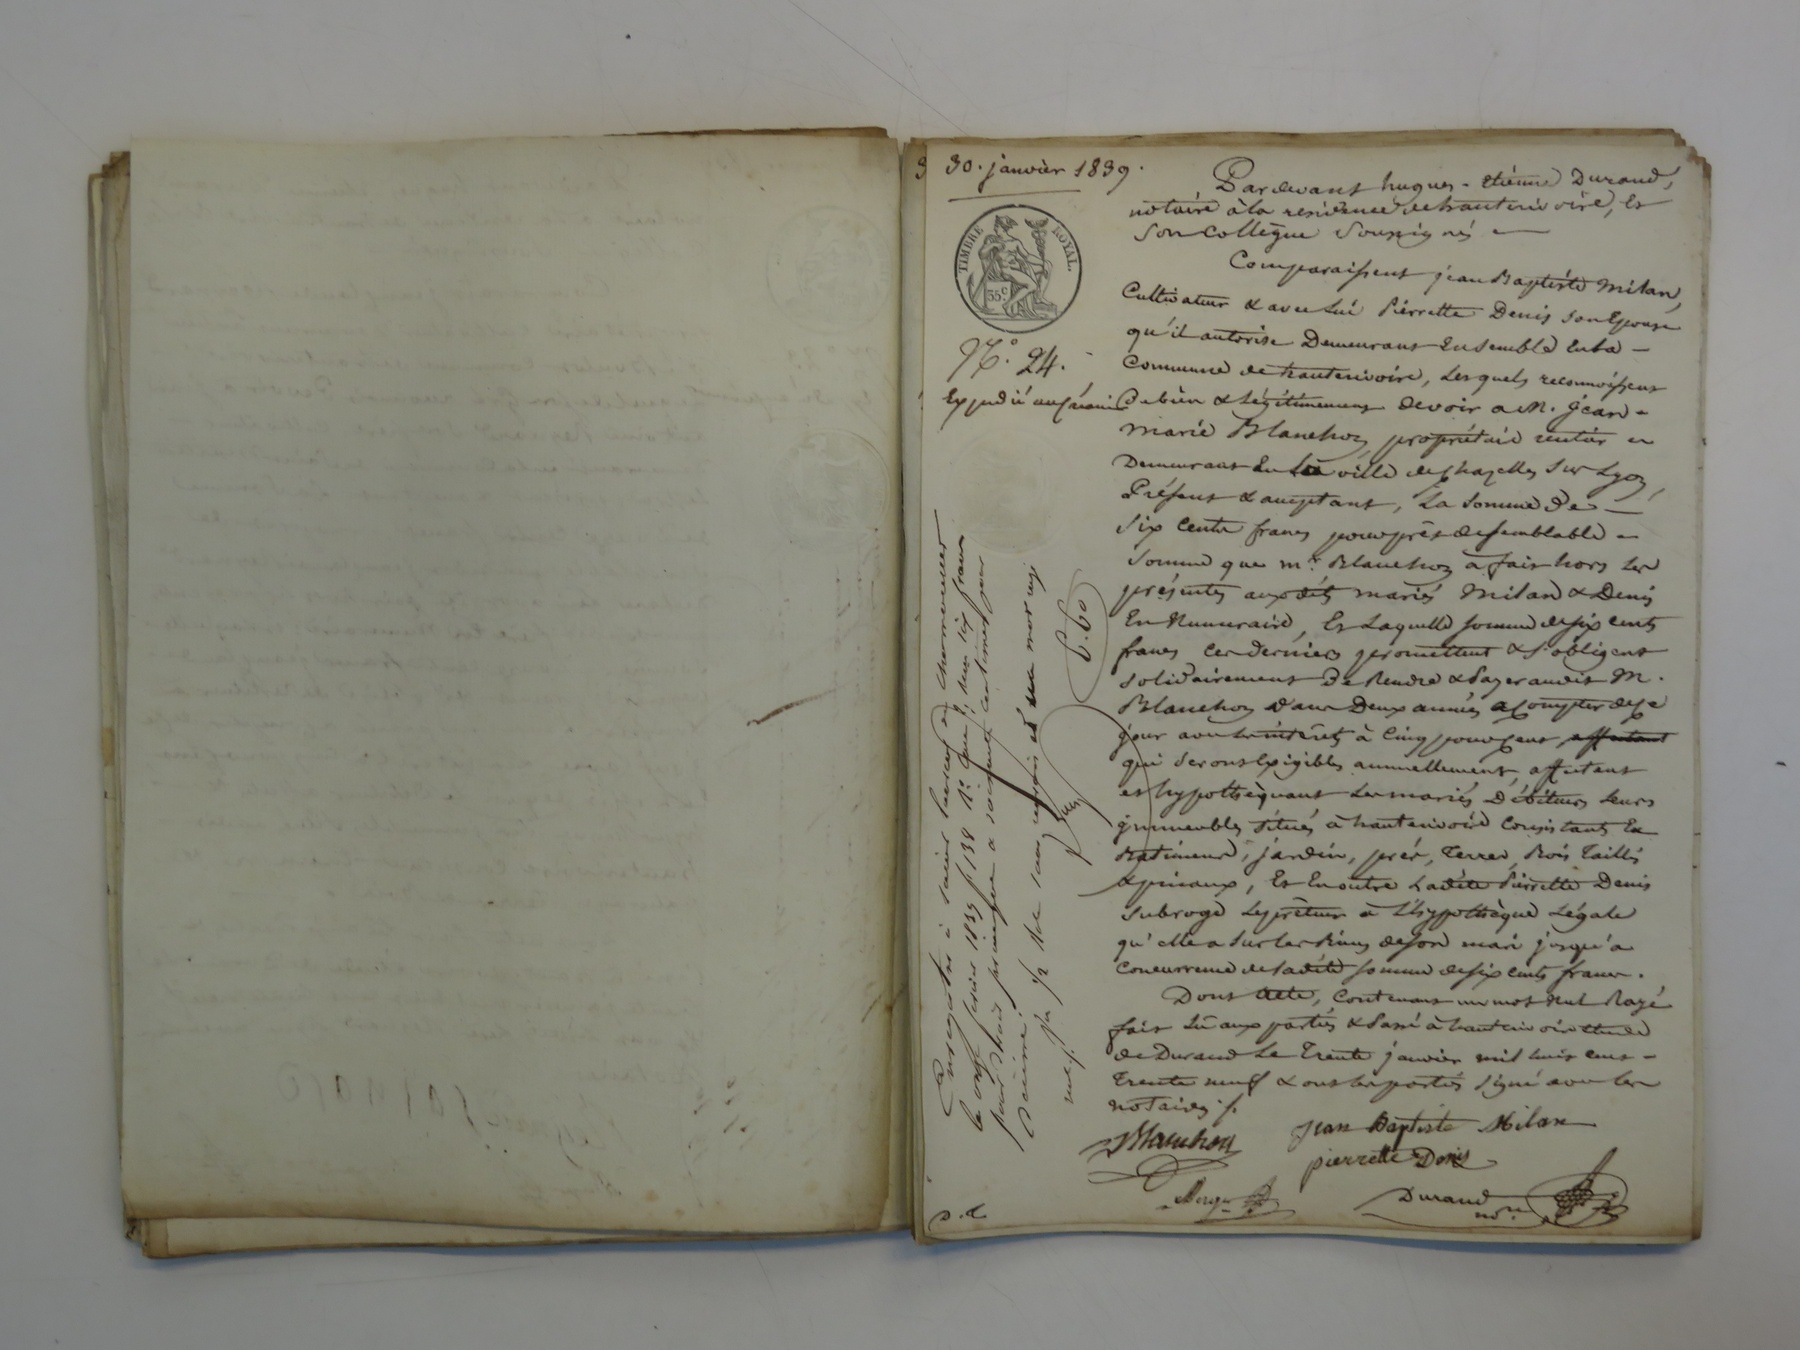 30. janvier 1839.
TIMBRE ROYAL.
35c
N.o 24.
Expédié au créancier
Pardevant hugues-étienne Durand,
notaire à la residence de hauterivoire, Et
son Collègue Soussignés
Comparaissent jean Baptiste Milan,
Cultivateur & avec lui Pierrette Denis son Epouse
qu'il autorise Demeurant Ensemble En la
Commune de hauterivoire, Lesquels reconnoissent
De bien & légitimement devoir a M. jean-
marie Blanchon, propriétaire rentier
Demeurant En la ville de Chazelles sur Lyon,
Présent & acceptant, La Somme De
Six Cents francs pour prêt de semblable
Somme que mr. Blanchon a fait hors Les
présentes auxdits mariés Milan & Denis
En Numeraire, Et Laquelle somme de six cents
francs ces derniers promettent & s'obligent
solidairement De Rendre & Payer audit M.
Blanchon Dans Deux années a Compter de ce
jour avec Les intérêts à Cinq pour Cent affectant
qui Seront Exigibles annuellement, affectant
et hypothèquant Les mariés Débiteurs Leurs
immeubles Situés à hauterivoire Consistants En
Batiments, jardin, prés, Terres, Bois Taillis
& pinaux, Et En outre Ladite Pierrette Denis
subroge Le prêteur à L'hypothèque Légale
qu'elle a sur Les Biens de son mari jusqu'a
Concurrence de Ladite somme de six cents francs.
Dont Acte, Contenant un mot Nul Rayé
fait Lû aux parties & Passé à hauterivoire Etude
de Durand Le Trente janvier mil huit cent
Trente neuf & ont Les parties signé avec Les
notaires ./.
Blanchon
jean Baptiste Milan
pierrette Denis
Durand
nore
D. d.
Enregistré à Saint Laurent de Chamousset
le onze février 1839 fo 138 Ro Cases reçu six francs
pour droit principal & soixante centimes pour
Décime.
6.60